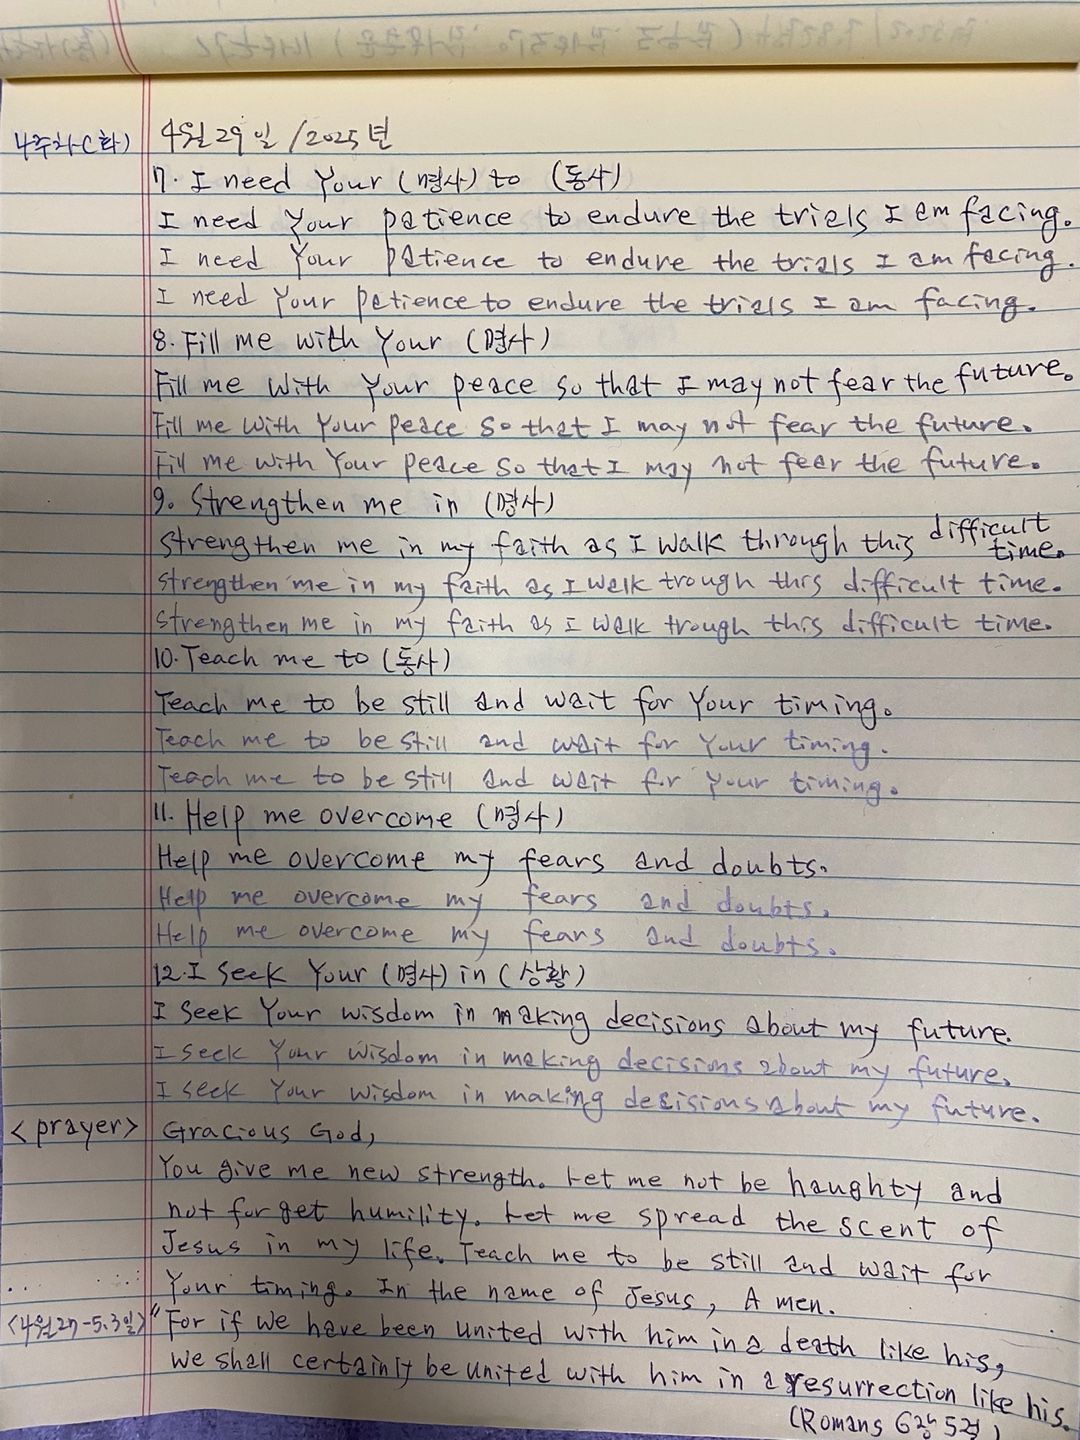 4주차(화)
4월 29일 /2025년
7. I need Your (명사) to (동사)
I need Your patience to endure the trials I am facing.
I need Your patience to endure the trials I am facing.
I need Your patience to endure the trials I am facing.
8. Fill me with Your (명사)
Fill me with Your peace so that I may not fear the future.
Fill me with Your peace so that I may not fear the future.
Fill me with Your peace so that I may not fear the future.
9. Strengthen me in (명사)
Strengthen me in my faith as I walk through this difficult time.
Strengthen me in my faith as I walk trough this difficult time.
Strengthen me in my faith as I walk trough this difficult time.
10. Teach me to (동사)
Teach me to be still and wait for Your timing.
Teach me to be still and wait for Your timing.
Teach me to be still and wait for Your timing.
11. Help me overcome (명사)
Help me overcome my fears and doubts.
Help me overcome my fears and doubts.
Help me overcome my fears and doubts.
12. I seek Your (명사) in (상황)
I seek Your wisdom in making decisions about my future.
I seek Your wisdom in making decisions about my future.
I seek Your wisdom in making decisions about my future.
<prayer> Gracious God,
You give me new strength. Let me not be haughty and
not forget humility. Let me spread the scent of
Jesus in my life. Teach me to be still and wait for
Your timing. In the name of Jesus, Amen.
<4월27-5.3일> "For if we have been united with him in a death like his,
we shall certainly be united with him in a resurrection like his.
(Romans 6장 5절)